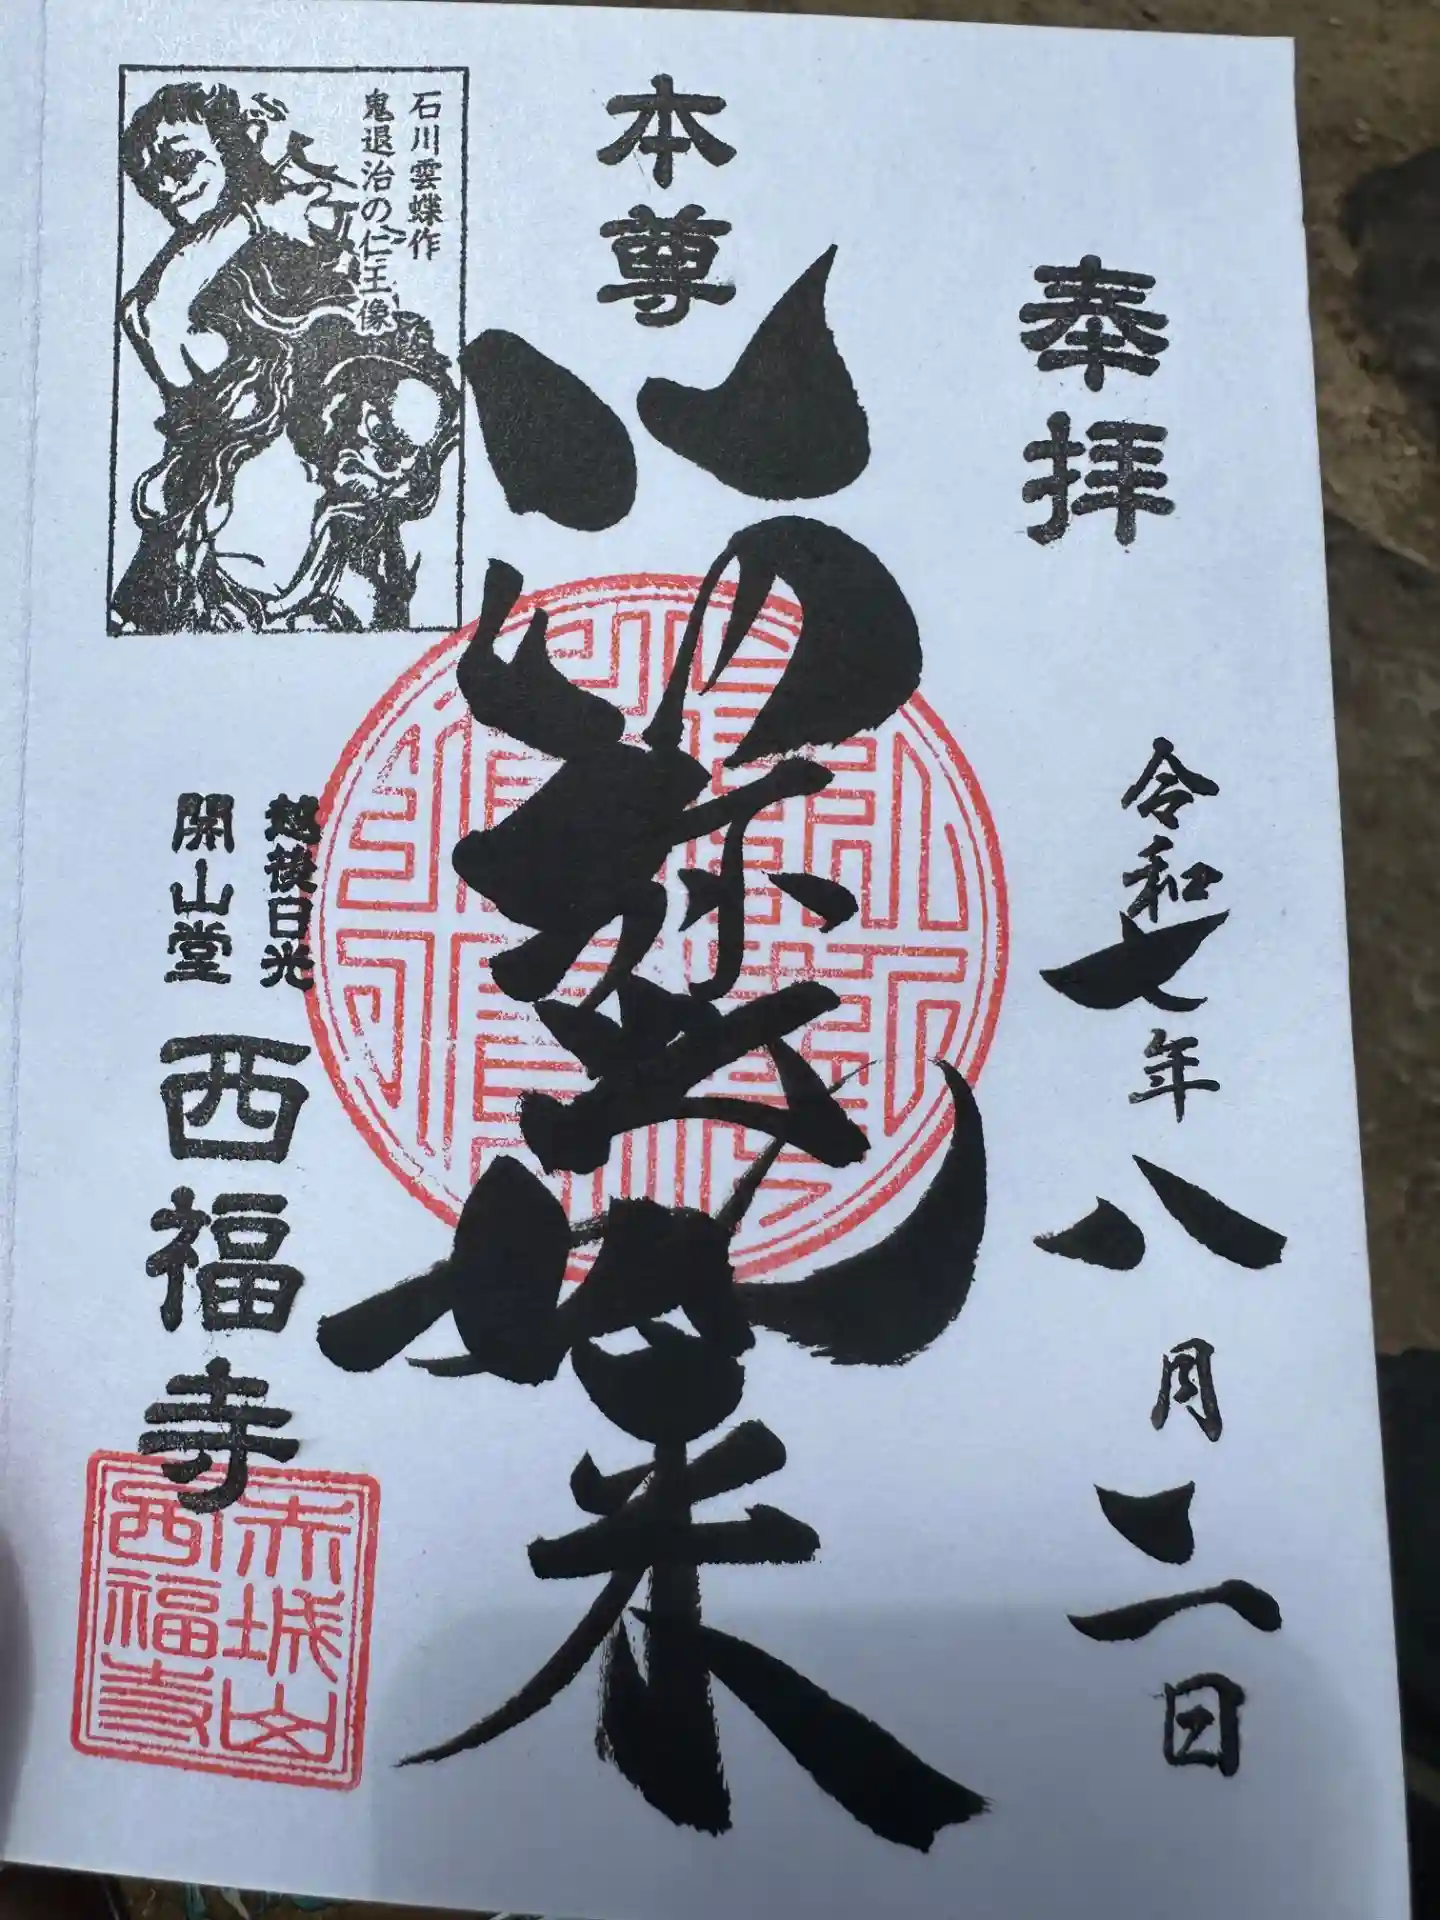 奉拝
令和七年八月二日
本尊
阿弥陀如来
石川雲蝶作
鬼退治の仁王像
越後日光
開山堂
西福寺
赤城山
西福寺